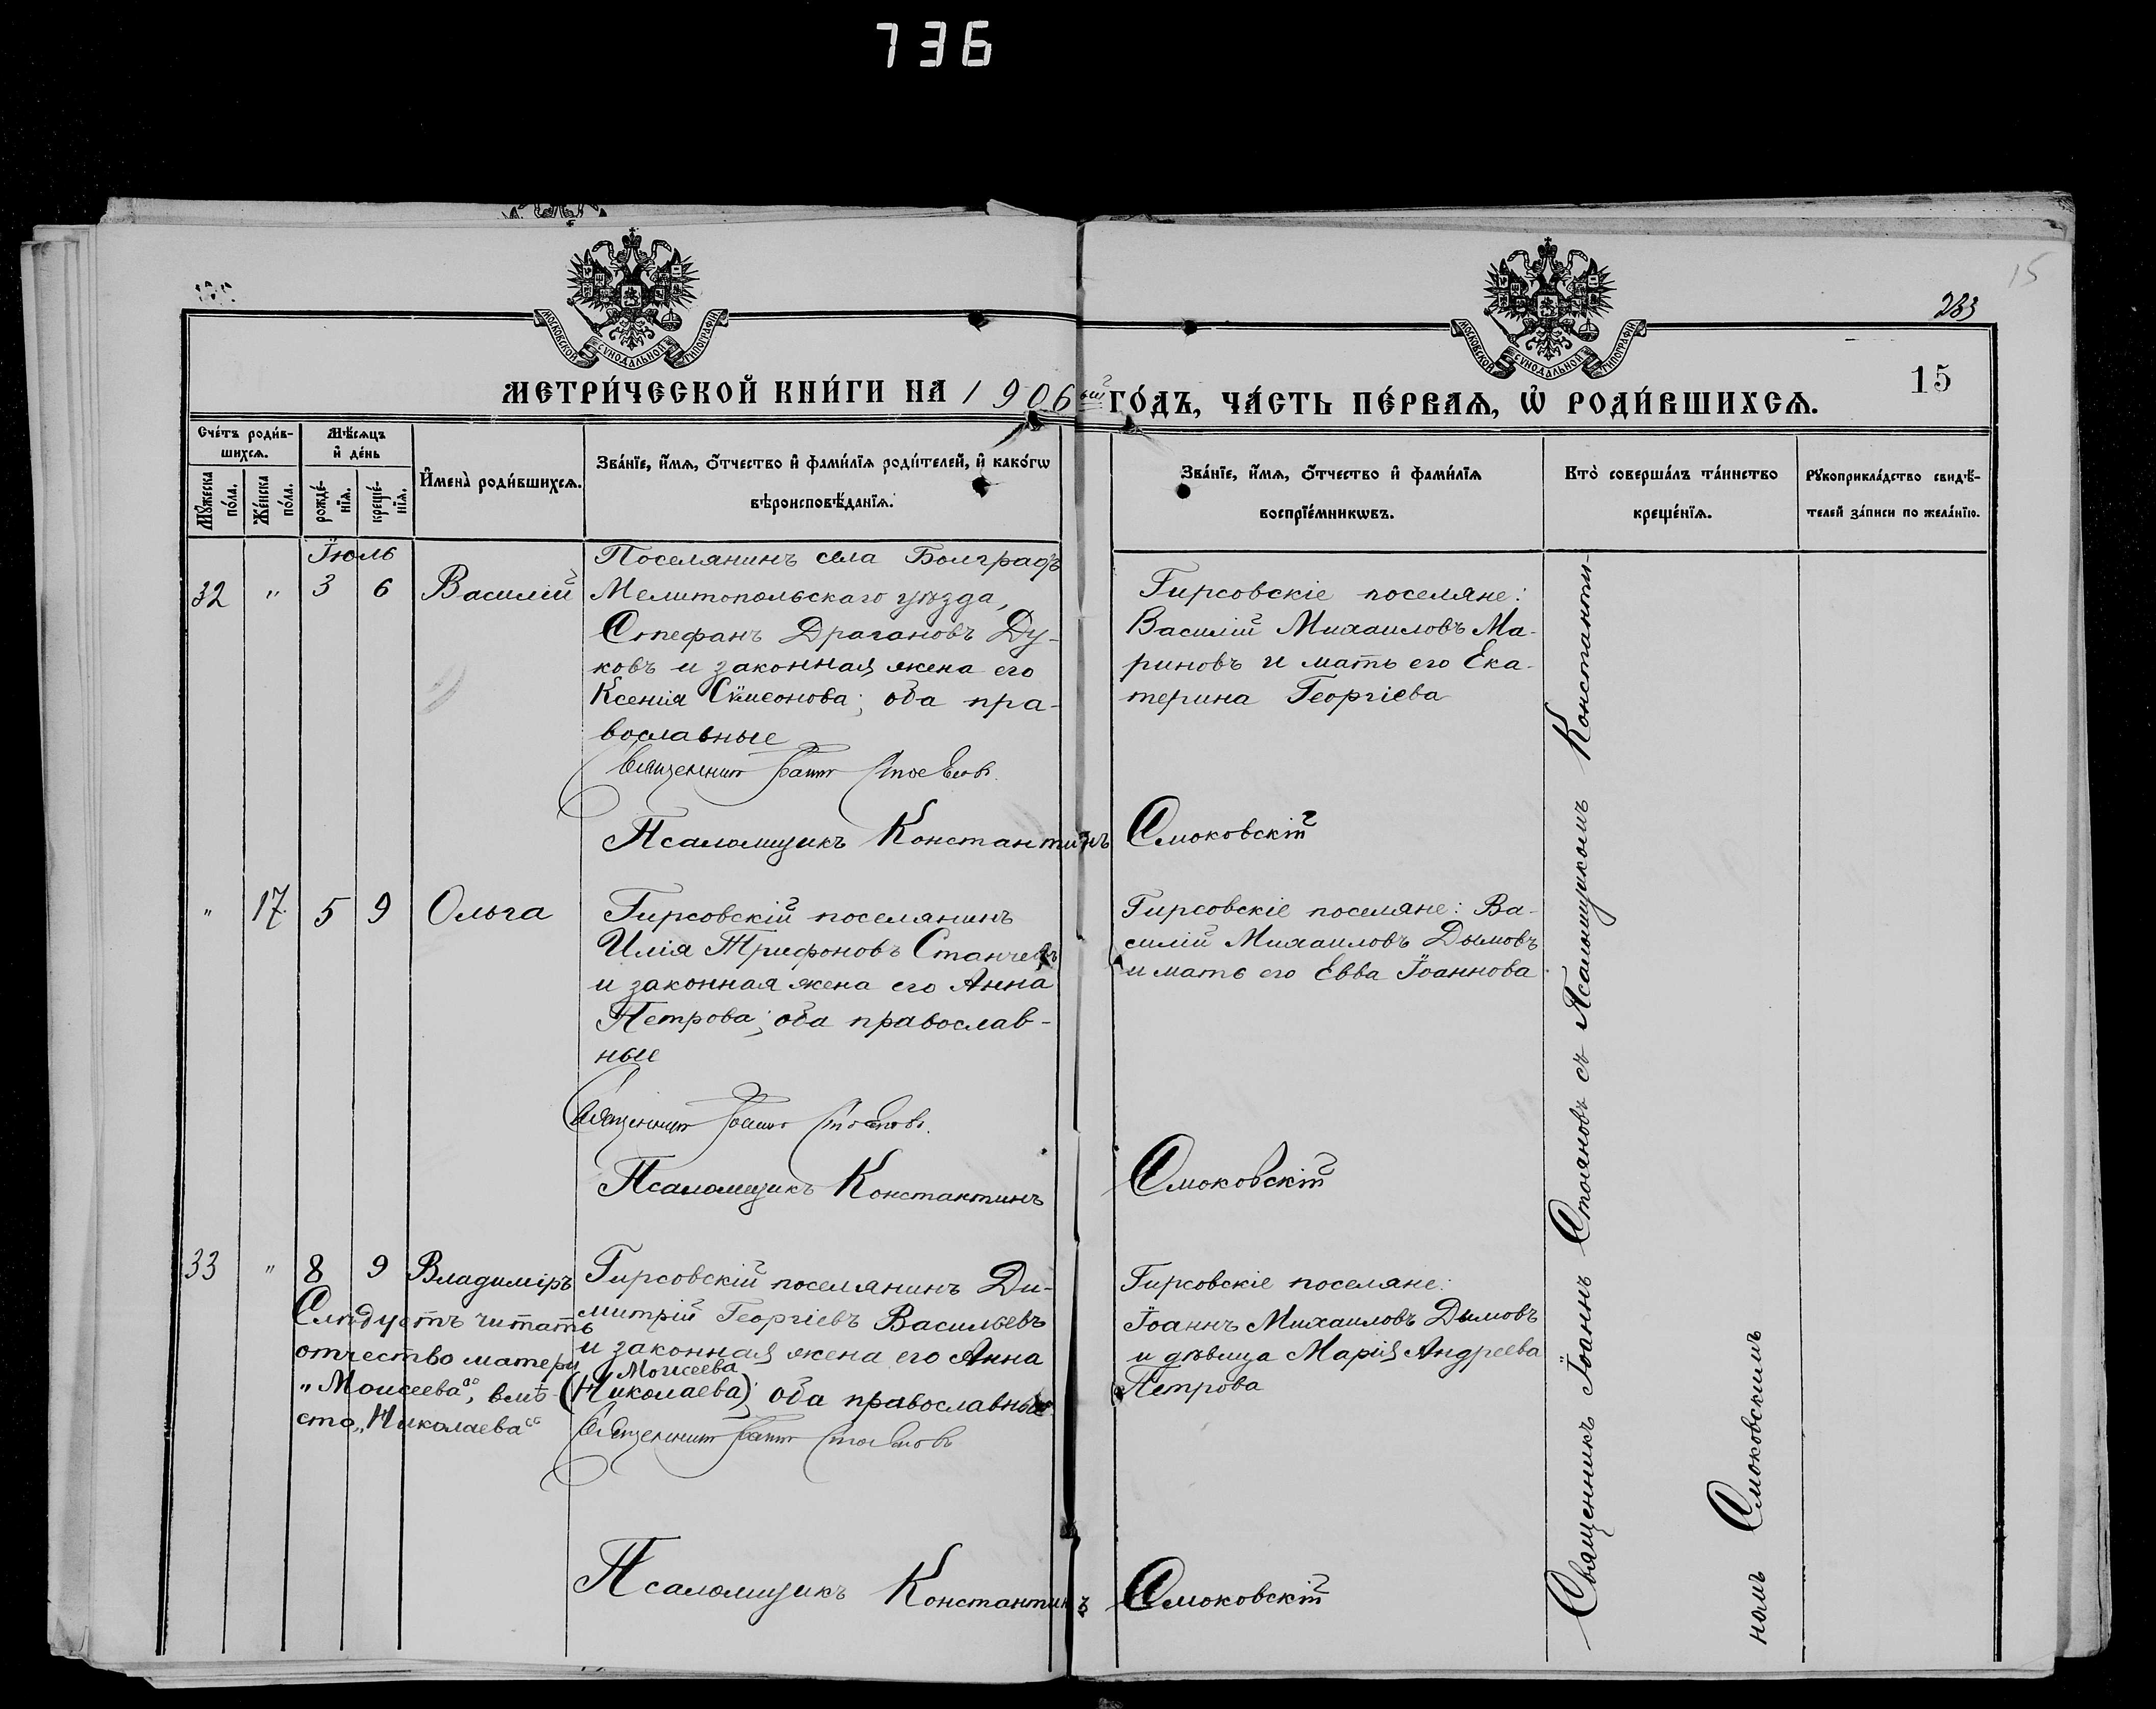 736
15
283
МОСКОВСКОЙ СѴНОДАЛЬНОЙ ТИПОГРАФІИ
МОСКОВСКОЙ СѴНОДАЛЬНОЙ ТИПОГРАФІИ
МЕТРИ́ЧЕСКОЙ КНИ́ГИ НА 1906ый ГО́ДЪ, ЧА́СТЬ ПЕ́РВАѦ, Ѡ҆ РОДИ́ВШИХСѦ.
15
Сче́тъ роди́в-
шихсѧ.
Мꙋ́жеска по́ла.
Же́нска по́ла.
Мѣ́сѧцъ
и҆ де́нь
рожде́-
нїѧ.
креще́-
нїѧ.
И҆мена̀ роди́вшихсѧ.
Зва́нїе, и҆́мѧ, ѻ҆́тчество и҆ фами́лїѧ роди́телей, и҆ како́гѡ
вѣроисповѣ́данїѧ.
Зва́нїе, и҆́мѧ, ѻ҆́тчество и҆ фами́лїѧ
воспрїе́мникѡвъ.
Кто̀ соверша́лъ та́инство
креще́нїѧ.
Рꙋкоприкла́дство свидѣ́-
телей за́писи по жела́нїю.
Іюль
32 " 3 6 Василій
Поселянинъ села Болградъ
Мелитопольскаго уѣзда,
Стефанъ Драгановъ Ду-
ковъ и законная жена его
Ксенія Сѵмеонова; оба пра-
вославные
Священникъ Іоаннъ Стояновъ.
Псаломщикъ Константинъ Смоковскій
Гирсовскіе поселяне:
Василій Михаиловъ Ма-
риновъ и мать его Ека-
терина Георгіева
" 17. 5 9 Ольга
Гирсовскій поселянинъ
Илія Трифоновъ Станчевъ
и законная жена его Анна
Петрова; оба православ-
ные
Священникъ Іоаннъ Стояновъ.
Псаломщикъ Константинъ Смоковскій
Гирсовскіе поселяне: Ва-
силій Михаиловъ Дымовъ
и мать его Евва Іоаннова
33 " 8 9 Владиміръ
Слѣдуетъ читать
отчество матери
"Моисеева", вмѣ-
сто "Николаева"
Гирсовскій поселянинъ Ди-
митрій Георгіевъ Васильевъ
и законная жена его Анна
Моисеева
(Николаева); оба православные
Священникъ Іоаннъ Стояновъ
Псаломщикъ Константинъ Смоковскій
Гирсовскіе поселяне:
Іоаннъ Михаиловъ Дымовъ
и дѣвица Марія Андреева
Петрова
Священникъ Іоаннъ Стояновъ съ Псаломщикомъ Константи-
номъ Смоковскимъ